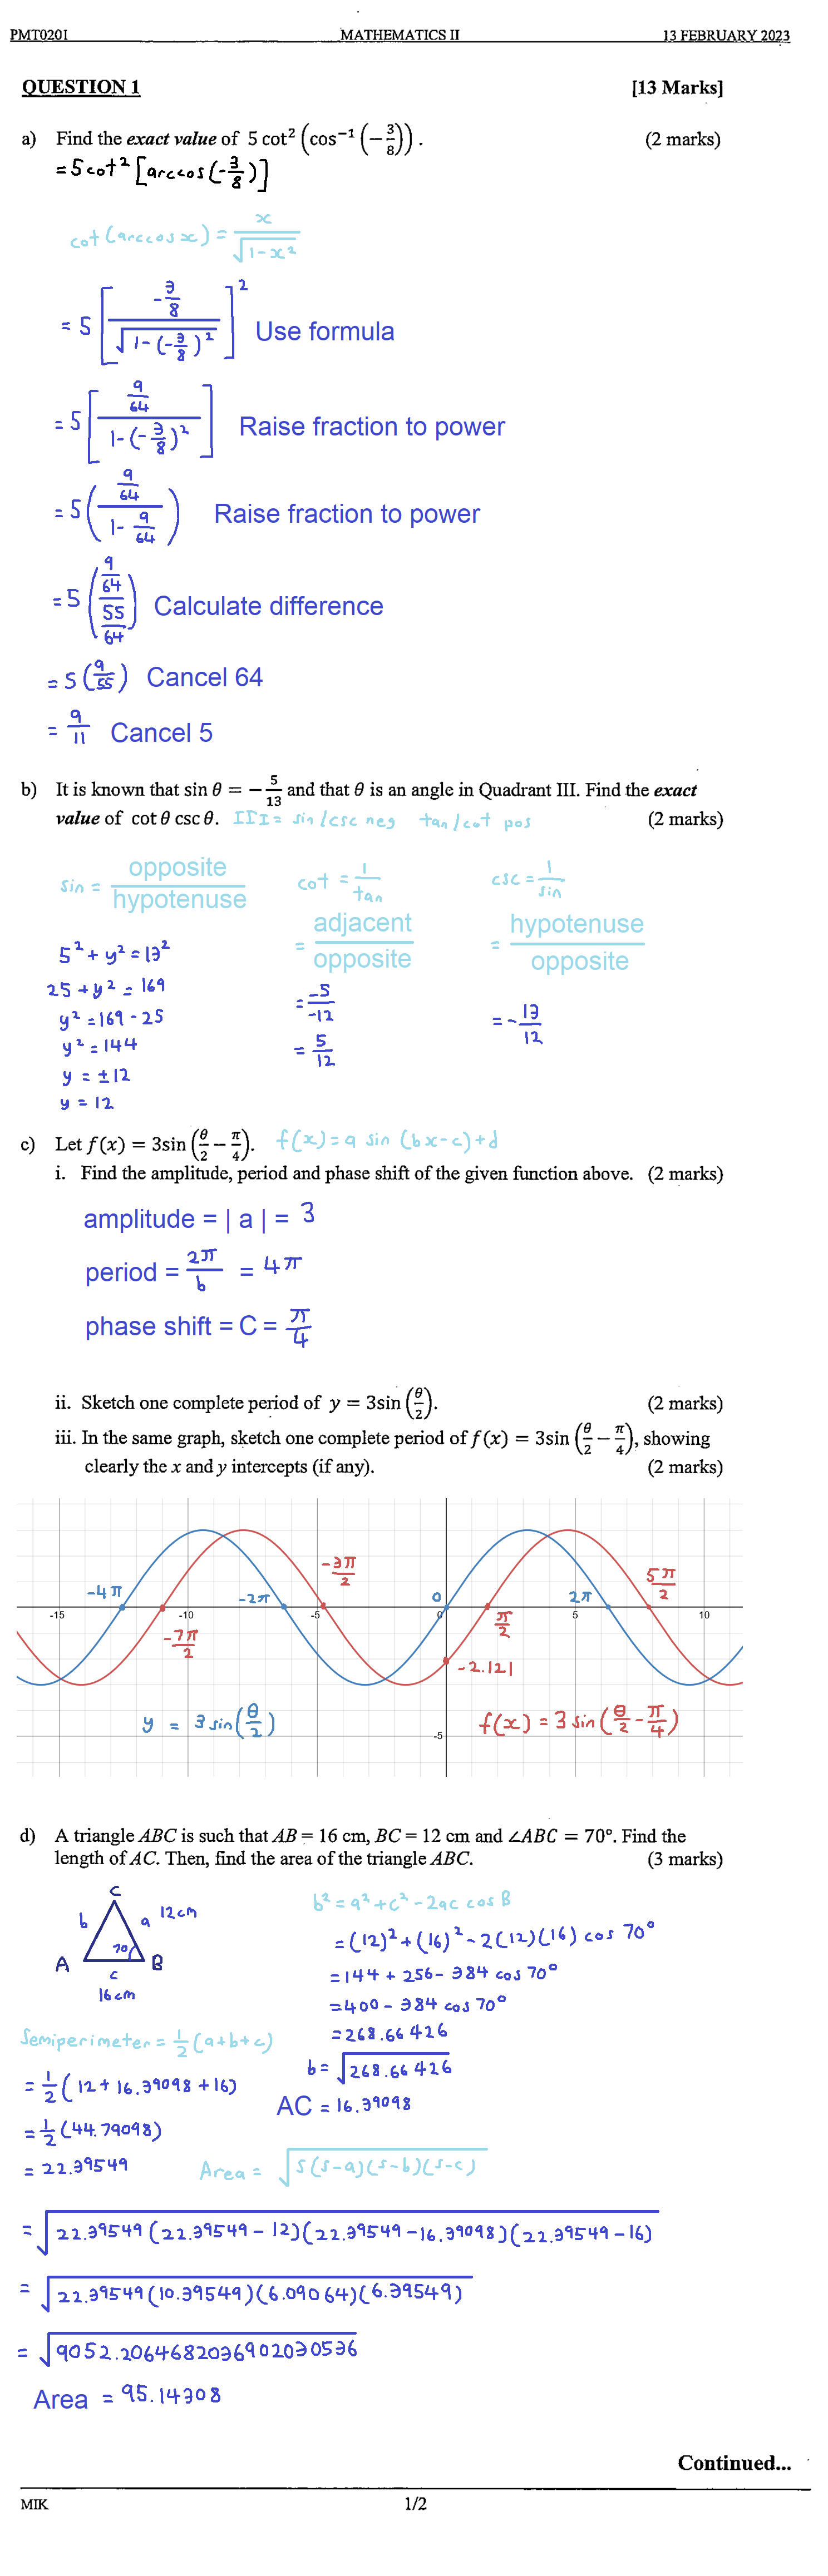 PMT0201 MATHEMATICS II 13 FEBRUARY 2023
QUESTION 1 [13 Marks]
a) Find the exact value of 5 cot² (cos⁻¹ (−3/8)) . (2 marks)
= 5 cot² [arccos(-3/8)]
cot(arccos x) = x/√(1-x²)
= 5 [(-3/8)/√(1-(-3/8)²)]² Use formula
= 5 [(9/64)/(1-(-3/8)²)] Raise fraction to power
= 5 ((9/64)/(1-9/64)) Raise fraction to power
= 5 ((9/64)/(55/64)) Calculate difference
= 5 (9/55) Cancel 64
= 9/11 Cancel 5
b) It is known that sin θ = −5/13 and that θ is an angle in Quadrant III. Find the exact
value of cot θ csc θ. III = sin/csc neg tan/cot pos (2 marks)
sin = opposite/hypotenuse
5² + y² = 13²
25 + y² = 169
y² = 169 - 25
y² = 144
y = ±12
y = 12
cot = 1/tan
= adjacent/opposite
= -5/-12
= 5/12
csc = 1/sin
= hypotenuse/opposite
= -13/12
c) Let f(x) = 3sin (θ/2 − π/4). f(x) = a sin (bx-c)+d
i. Find the amplitude, period and phase shift of the given function above. (2 marks)
amplitude = | a | = 3
period = 2π/b = 4π
phase shift = C = π/4
ii. Sketch one complete period of y = 3sin (θ/2). (2 marks)
iii. In the same graph, sketch one complete period of f(x) = 3sin (θ/2 − π/4), showing
clearly the x and y intercepts (if any). (2 marks)
-4π -2π -3π/2 0 2π 5π/2
-15 -10 -5 0 5 10
-7π/2 π/2
-2.121
y = 3 sin(θ/2) f(x) = 3 sin(θ/2 - π/4)
-5
d) A triangle ABC is such that AB = 16 cm, BC = 12 cm and ∠ABC = 70°. Find the
length of AC. Then, find the area of the triangle ABC. (3 marks)
C
b a 12cm
A 70 B
c
16cm
b² = a² + c² - 2ac cos B
= (12)² + (16)² - 2(12)(16) cos 70°
= 144 + 256 - 384 cos 70°
= 400 - 384 cos 70°
= 268.66426
b = √268.66426
AC = 16.39098
Semiperimeter = 1/2(a+b+c)
= 1/2(12 + 16.39098 + 16)
= 1/2(44.79098)
= 22.39549
Area = √s(s-a)(s-b)(s-c)
= √22.39549(22.39549-12)(22.39549-16.39098)(22.39549-16)
= √22.39549(10.39549)(6.09064)(6.39549)
= √9052.2064682036902030536
Area = 95.14308
Continued...
MIK 1/2